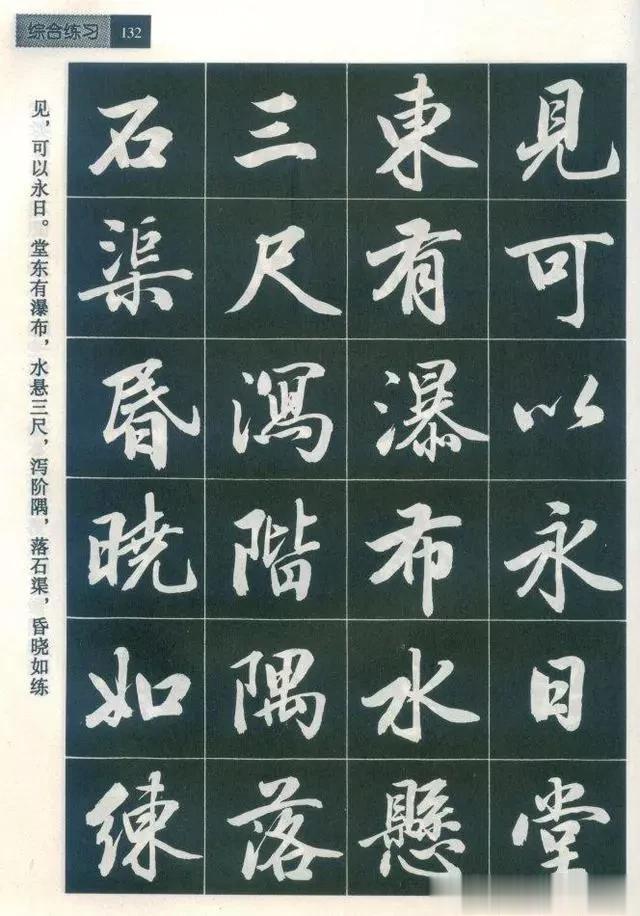 综合练习 132
見可以永日堂
東有瀑布水懸
三尺瀉階隅落
石渠昏曉如練
见，可以永日。堂东有瀑布，水悬三尺，泻阶隅，落石渠，昏晓如练